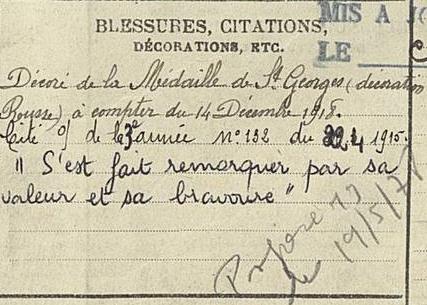 BLESSURES, CITATIONS,
DÉCORATIONS, ETC.
MIS A JO
LE
Décoré de la Médaille de St Georges (décoration
Rousse) à compter du 14 Décembre 1918.
Cité Oj de la 3e année n° 182 du 22.4 1915.
"S'est fait remarquer par sa
valeur et sa bravoure"
19/5/77